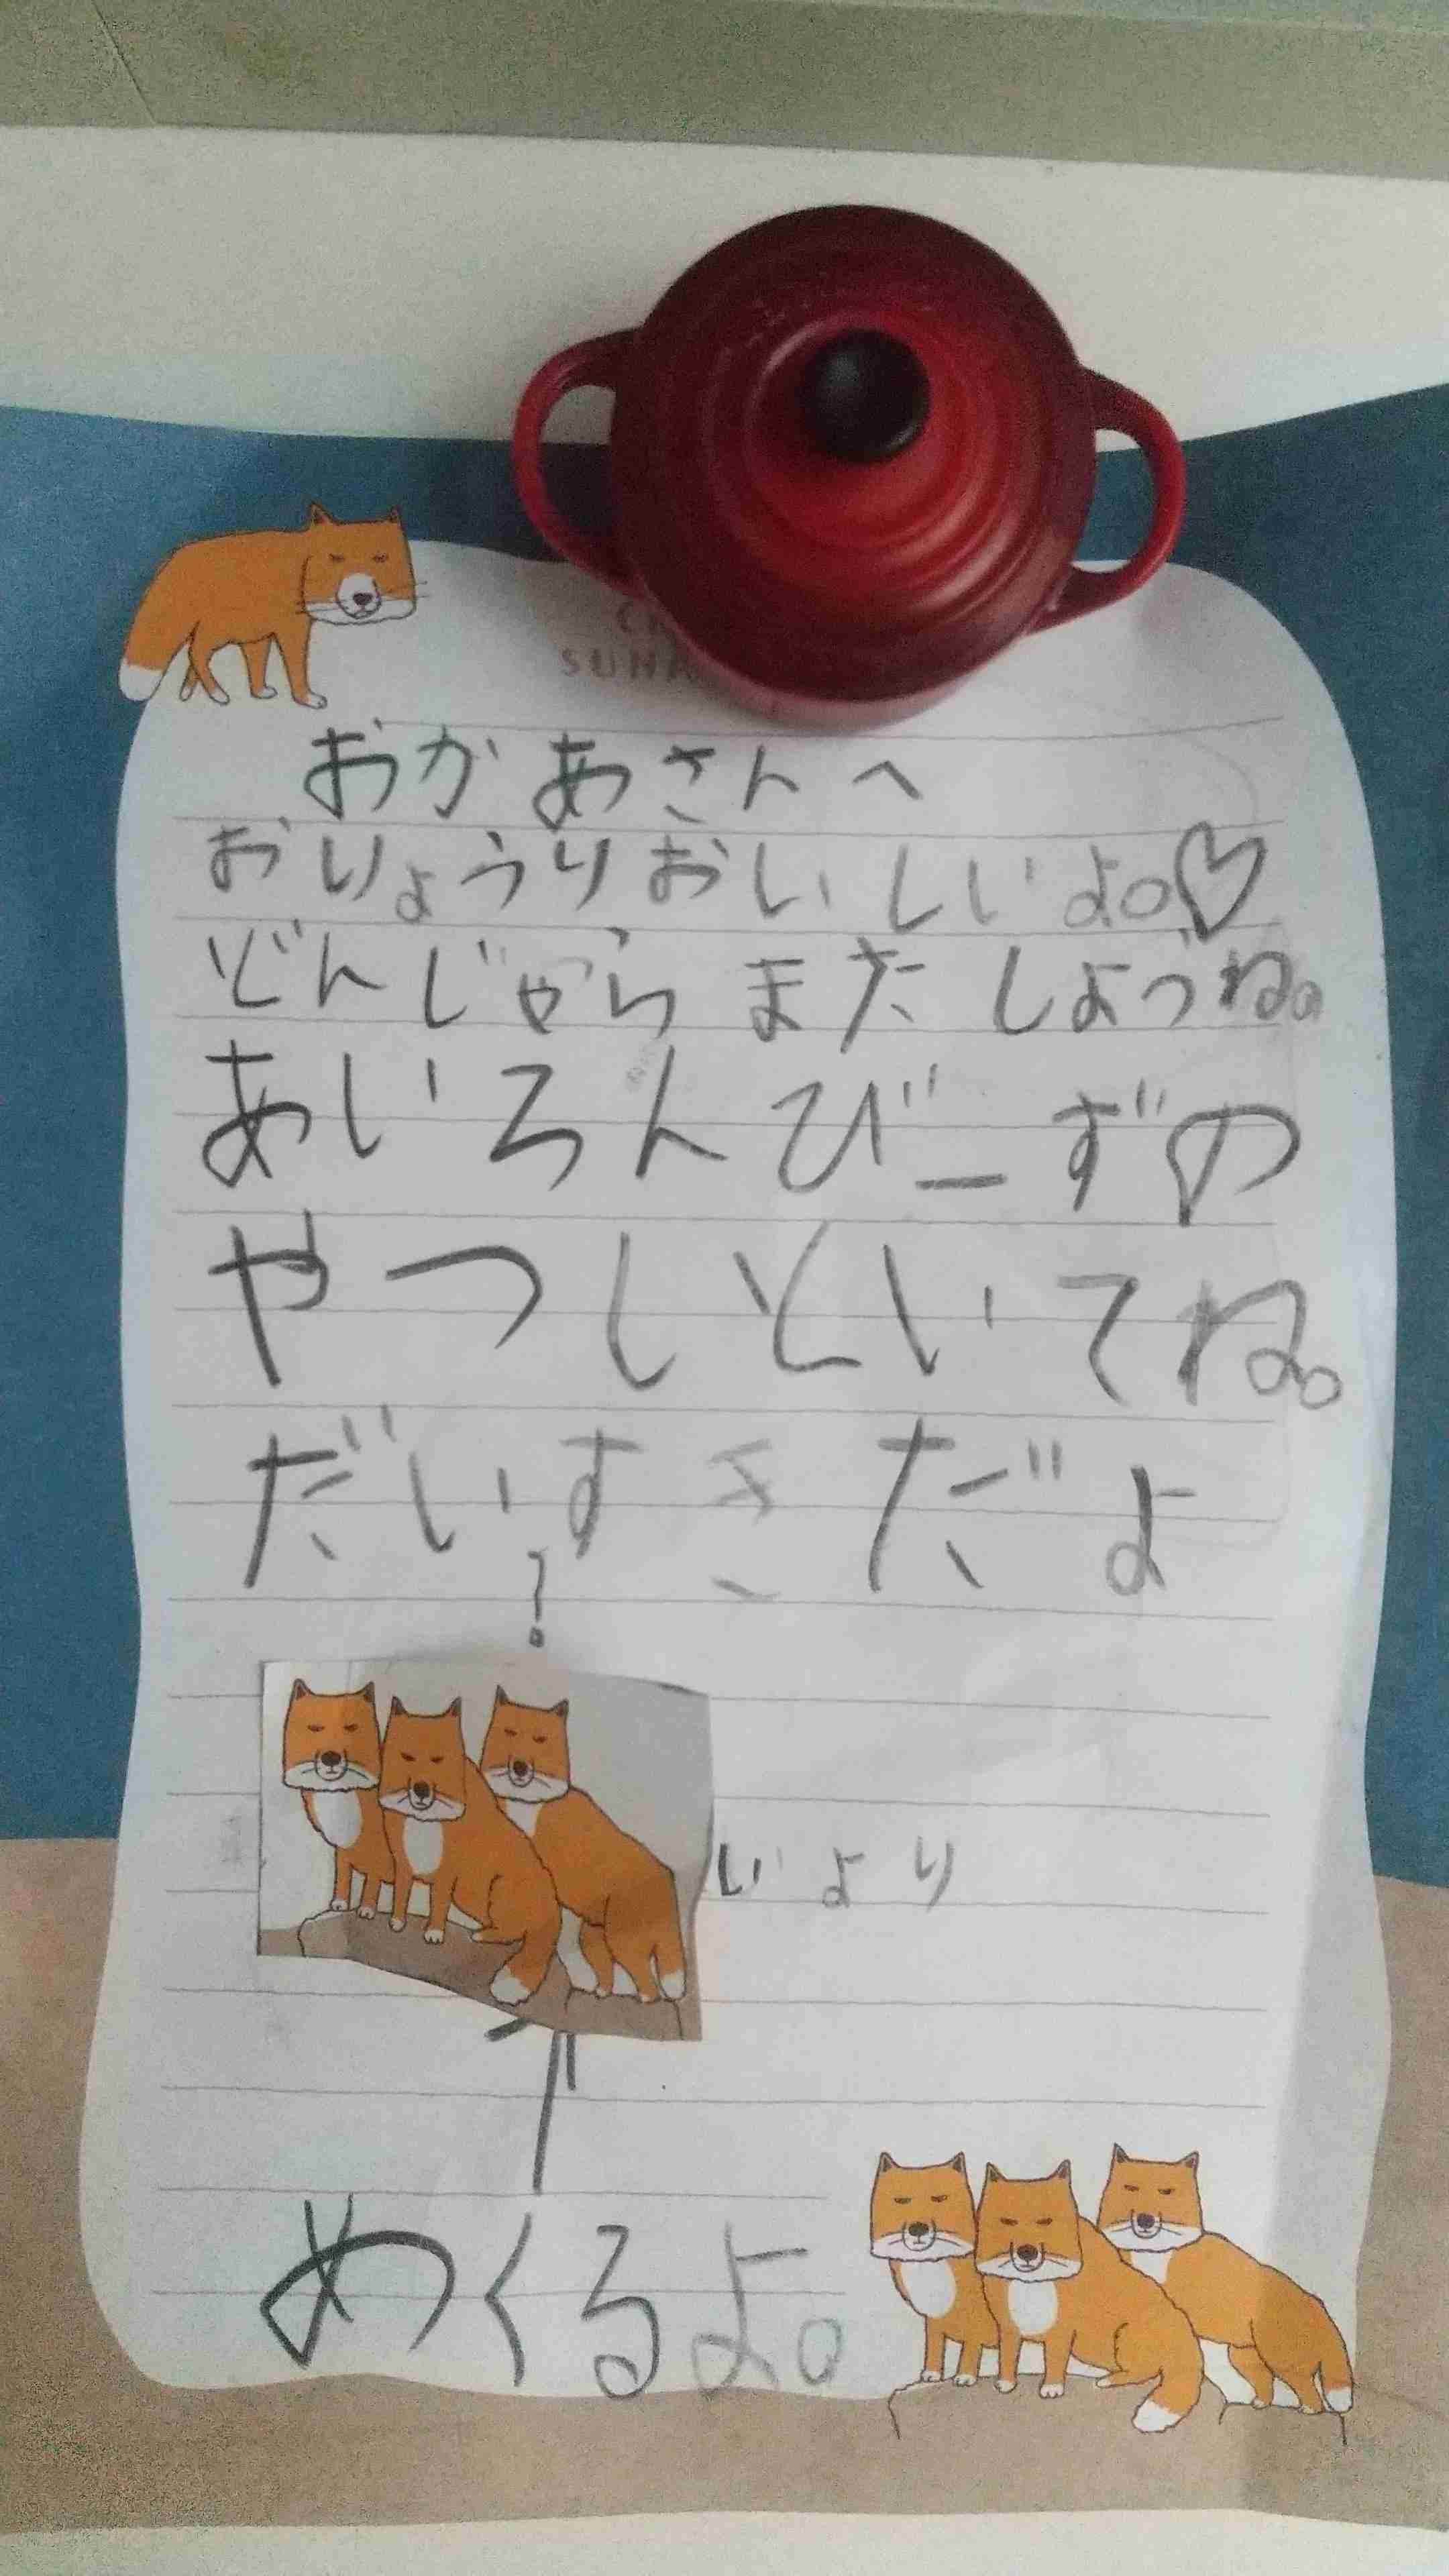 おかあさんへ
おりょうりおいしいよ。♡
どんじゃらまたしようね。
あいろんびーずの
やつしといてね。
だいすきだよ
?
いより
めくるよ。